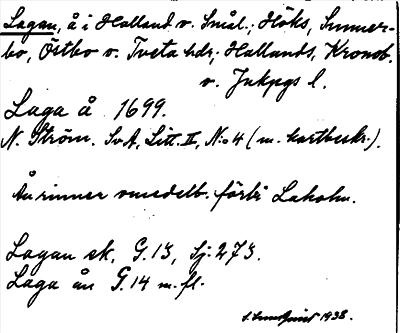 Lagan, å i Halland o. Smål.; Höks, Sunner-
bo, Östbo o. Tveta hdr; Hallands, Kronob.
o. Jnkpgs l.
Laga å 1699.
N. Ström. SvA, Litt. II, N:o 4 (m. kartbeskr.).
Ån rinner omedelb. förbi Laholm.
Lagan ek, G. 13, Sj. 273.
Laga ån G. 14 m. fl.
1938.